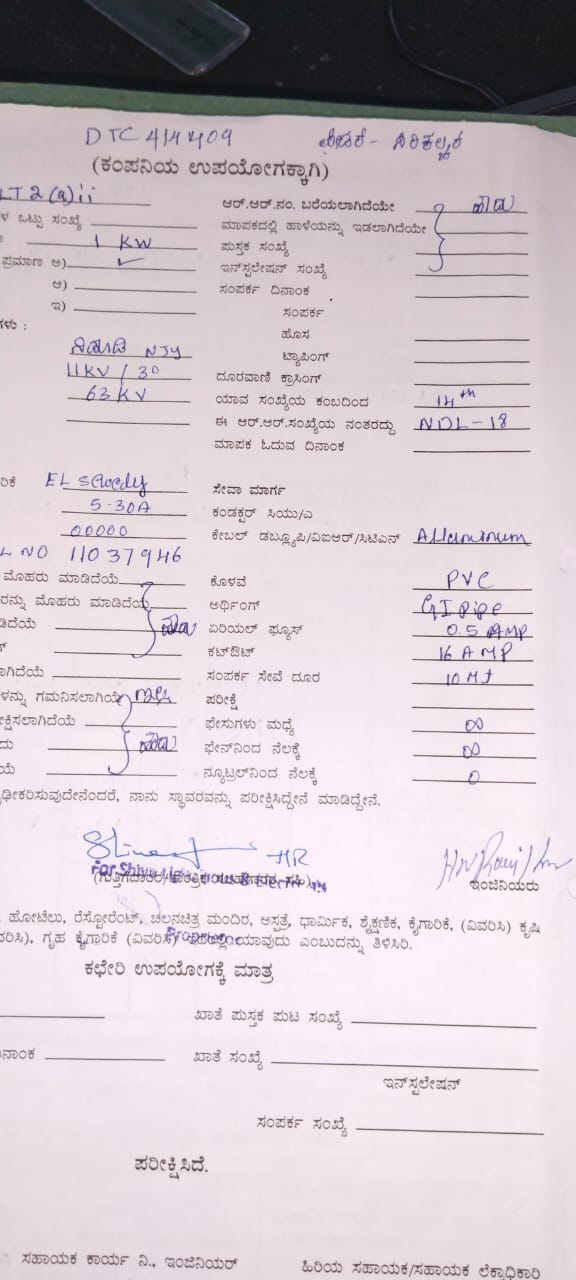 DTC 414409
(ಕಂಪನಿಯ ಉಪಯೋಗಕ್ಕಾಗಿ)
LT2(a)ii ಆರ್.ಆರ್.ನಂ. ಬರೆಯಲಾಗಿದೆಯೇ ಹೌದು
ಳ ಒಟ್ಟು ಸಂಖ್ಯೆ ಮಾಪಕದಲ್ಲಿ ಹಾಳೆಯನ್ನು ಇಡಲಾಗಿದೆಯೇ
1 KW ಪುಸ್ತಕ ಸಂಖ್ಯೆ
ಪ್ರಮಾಣ ಅ) ✓ ಇನ್‌ಸ್ಟಲೇಷನ್ ಸಂಖ್ಯೆ
ಆ) ಸಂಪರ್ಕ ದಿನಾಂಕ
ಇ) ಸಂಪರ್ಕ
ಗಳು : ಹೊಸ
NJY ಟ್ಯಾಪಿಂಗ್
11KV / 30 ದೂರವಾಣಿ ಕ್ರಾಸಿಂಗ್
63 KV ಯಾವ ಸಂಖ್ಯೆಯ ಕಂಬದಿಂದ 14th
ಈ ಆರ್.ಆರ್.ಸಂಖ್ಯೆಯ ನಂತರದ್ದು NDL-18
ಮಾಪಕ ಓದುವ ದಿನಾಂಕ
ರಿಕೆ EL Sewedy ಸೇವಾ ಮಾರ್ಗ
5-30A ಕಂಡಕ್ಟರ್ ಸಿಯು/ಎ
00000 ಕೇಬಲ್ ಡಬ್ಲ್ಯೂಪಿ/ವಿಐಆರ್/ಸಿಟಿಎನ್ Alluminum
L NO 11037946
ಮೊಹರು ಮಾಡಿದೆಯೆ ಕೊಳವೆ PVC
ರನ್ನು ಮೊಹರು ಮಾಡಿದೆಯೆ ಅರ್ಥಿಂಗ್ GI pipe
ಡಿದೆಯೆ ಹೌದು ಏರಿಯಲ್ ಫ್ಯೂಸ್ 0.5 AMP
ಕಟ್‌ಔಟ್ 16 AMP
ಾಗಿದೆಯೆ ಸಂಪರ್ಕ ಸೇವೆ ದೂರ 10 Mt
ಳನ್ನು ಗಮನಿಸಲಾಗಿಯೆ ಪರೀಕ್ಷೆ
ಕ್ಷಿಸಲಾಗಿದೆಯೆ ಫೇಸುಗಳು ಮಧ್ಯೆ ∞
ದು ಹೌದು ಫೇಸ್‌ನಿಂದ ನೆಲಕ್ಕೆ ∞
ಯೆ ನ್ಯೂಟ್ರಲ್‌ನಿಂದ ನೆಲಕ್ಕೆ 0
ಢೀಕರಿಸುವುದೇನೆಂದರೆ, ನಾನು ಸ್ಥಾವರವನ್ನು ಪರೀಕ್ಷಿಸಿದ್ದೇನೆ ಮಾಡಿದ್ದೇನೆ.
HR
ಇಂಜಿನಿಯರು
ಹೋಟೆಲು, ರೆಸ್ಟೋರೆಂಟ್, ಚಲನಚಿತ್ರ ಮಂದಿರ, ಅಸ್ಪತ್ರೆ, ಧಾರ್ಮಿಕ, ಶೈಕ್ಷಣಿಕ, ಕೈಗಾರಿಕೆ, (ವಿವರಿಸಿ) ಕೃಷಿ
ವರಿಸಿ), ಗೃಹ ಕೈಗಾರಿಕೆ (ವಿವರಿಸಿ) ಇದರಲ್ಲಿ ಯಾವುದು ಎಂಬುದನ್ನು ತಿಳಿಸಿರಿ.
ಕಛೇರಿ ಉಪಯೋಗಕ್ಕೆ ಮಾತ್ರ
ಖಾತೆ ಪುಸ್ತಕ ಪುಟ ಸಂಖ್ಯೆ
ನಾಂಕ ಖಾತೆ ಸಂಖ್ಯೆ
ಇನ್‌ಸ್ಟಲೇಷನ್
ಸಂಪರ್ಕ ಸಂಖ್ಯೆ
ಪರೀಕ್ಷಿಸಿದೆ.
ಸಹಾಯಕ ಕಾರ್ಯ ನಿ., ಇಂಜಿನಿಯರ್ ಹಿರಿಯ ಸಹಾಯಕ/ಸಹಾಯಕ ಲೆಕ್ಕಾಧಿಕಾರಿ